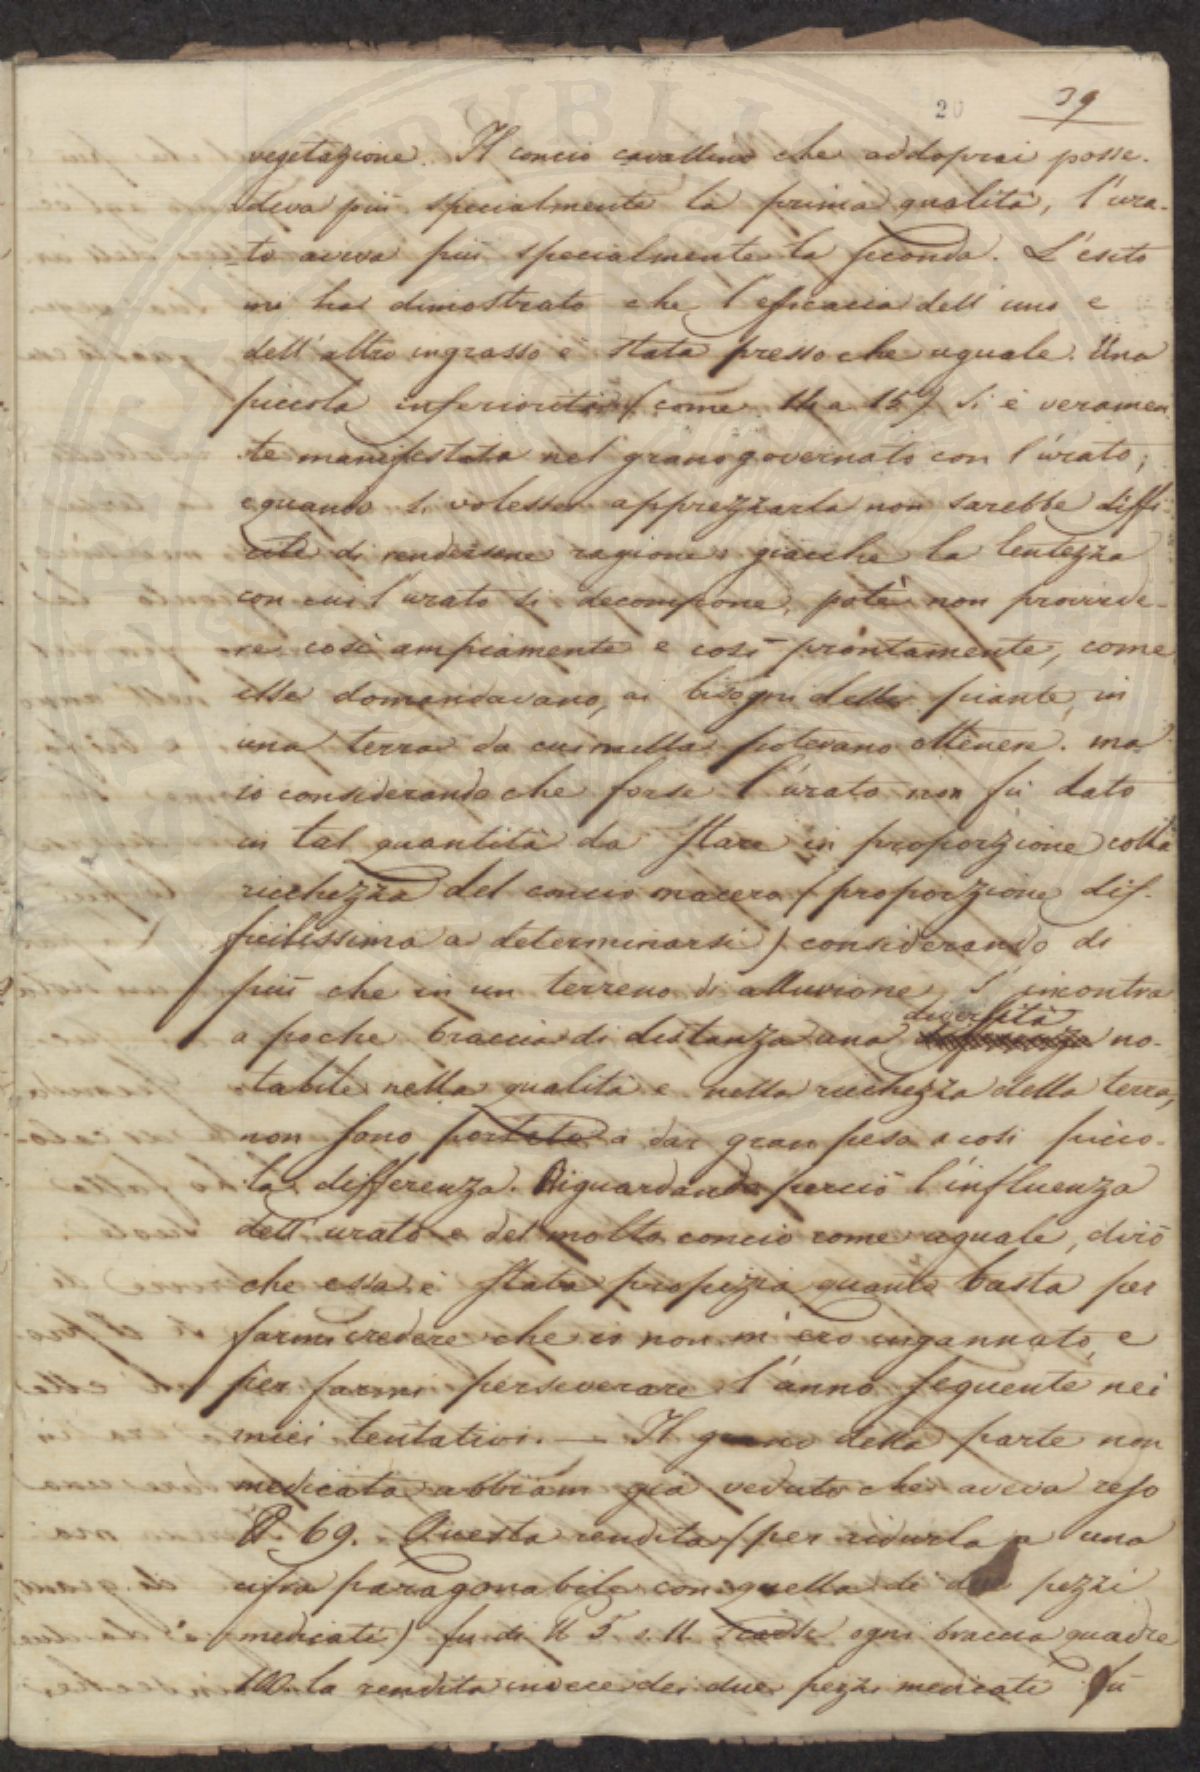 20 39
vegetazione. Il concio cavallino che addoprai posse-
deva più specialmente la prima qualità, l'ura-
to aveva più specialmente la seconda. L'esito
mi ha dimostrato che l'eficacia dell'uno e
dell'altro ingrasso è stata presso che uguale. Una
piccola inferiorità (come 14 a 15) si è veramen
te manifestata nel grano governato con l'urato;
e quando si volesse apprezzarla non sarebbe diffi-
cile di rendersene ragione; giacchè la lentezza
con cui l'urato si decompone, potè non provvede-
re così ampiamente e così prontamente, come
esse domandavano, ai bisogni delle piante, in
una terra da cui nulla potevano ottenere. ma
io considerando che forse l'urato non fù dato
in tal quantità da stare in proporzione colla
ricchezza del concio macero (proporzione dif-
ficilissima a determinarsi) considerando di
più che in un terreno di alluvione s'incontra
diversità
a poche braccia di distanza una no-
tabile nella qualità e nella ricchezza della terra,
non sono portato a dar gran peso a così picco-
la differenza. Riguardando perciò l'influenza
dell'urato e del molto concio come uguale, dirò
che essa è stata propizia quanto basta per
farmi credere che io non m'ero ingannato, e
per farmi perseverare l'anno seguente nei
miei tentativi. — Il grano della parte non
medicata abbiam già veduto che aveva reso
69. Questa rendita (per ridurla a una
cifra paragonabile con quella de' due pezzi
medicati) fu di 5 s. 11 scarse ogni braccia quadre
100. la rendita invece dei due pezzi medicati fù